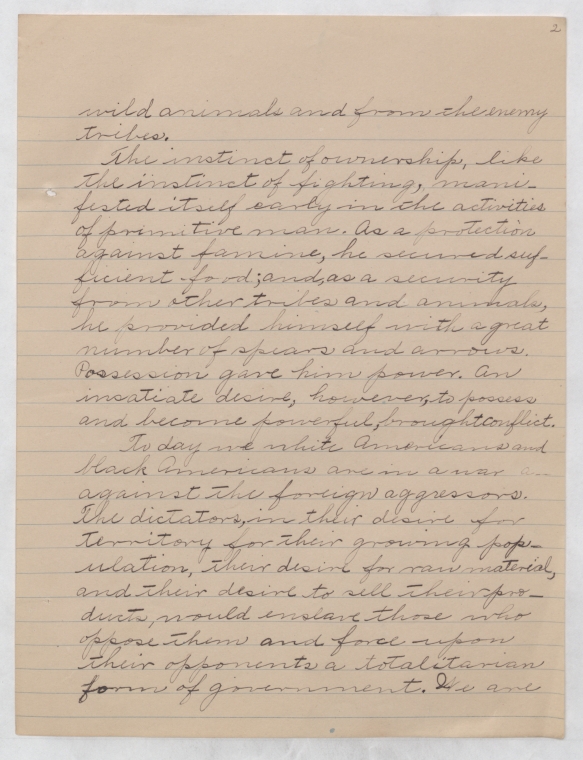 2
wild animals and from the enemy
tribes.
The instinct of ownership, like
the instinct of fighting, mani-
fested itself early in the activities
of primitive man. As a protection
against famine, he secured suf-
ficient food; and, as a security
from other tribes and animals,
he provided himself with a great
number of spears and arrows.
Possession gave him power. An
insatiate desire, however, to possess
and become powerful, brought conflict.
Today we white Americans and
black Americans are in a war
against the foreign aggressors.
The dictators, in their desire for
territory for their growing pop-
ulation, their desire for raw material,
and their desire to sell their pro-
ducts, would enslave those who
oppose them and force upon
their opponents a totalitarian
form of government. We are